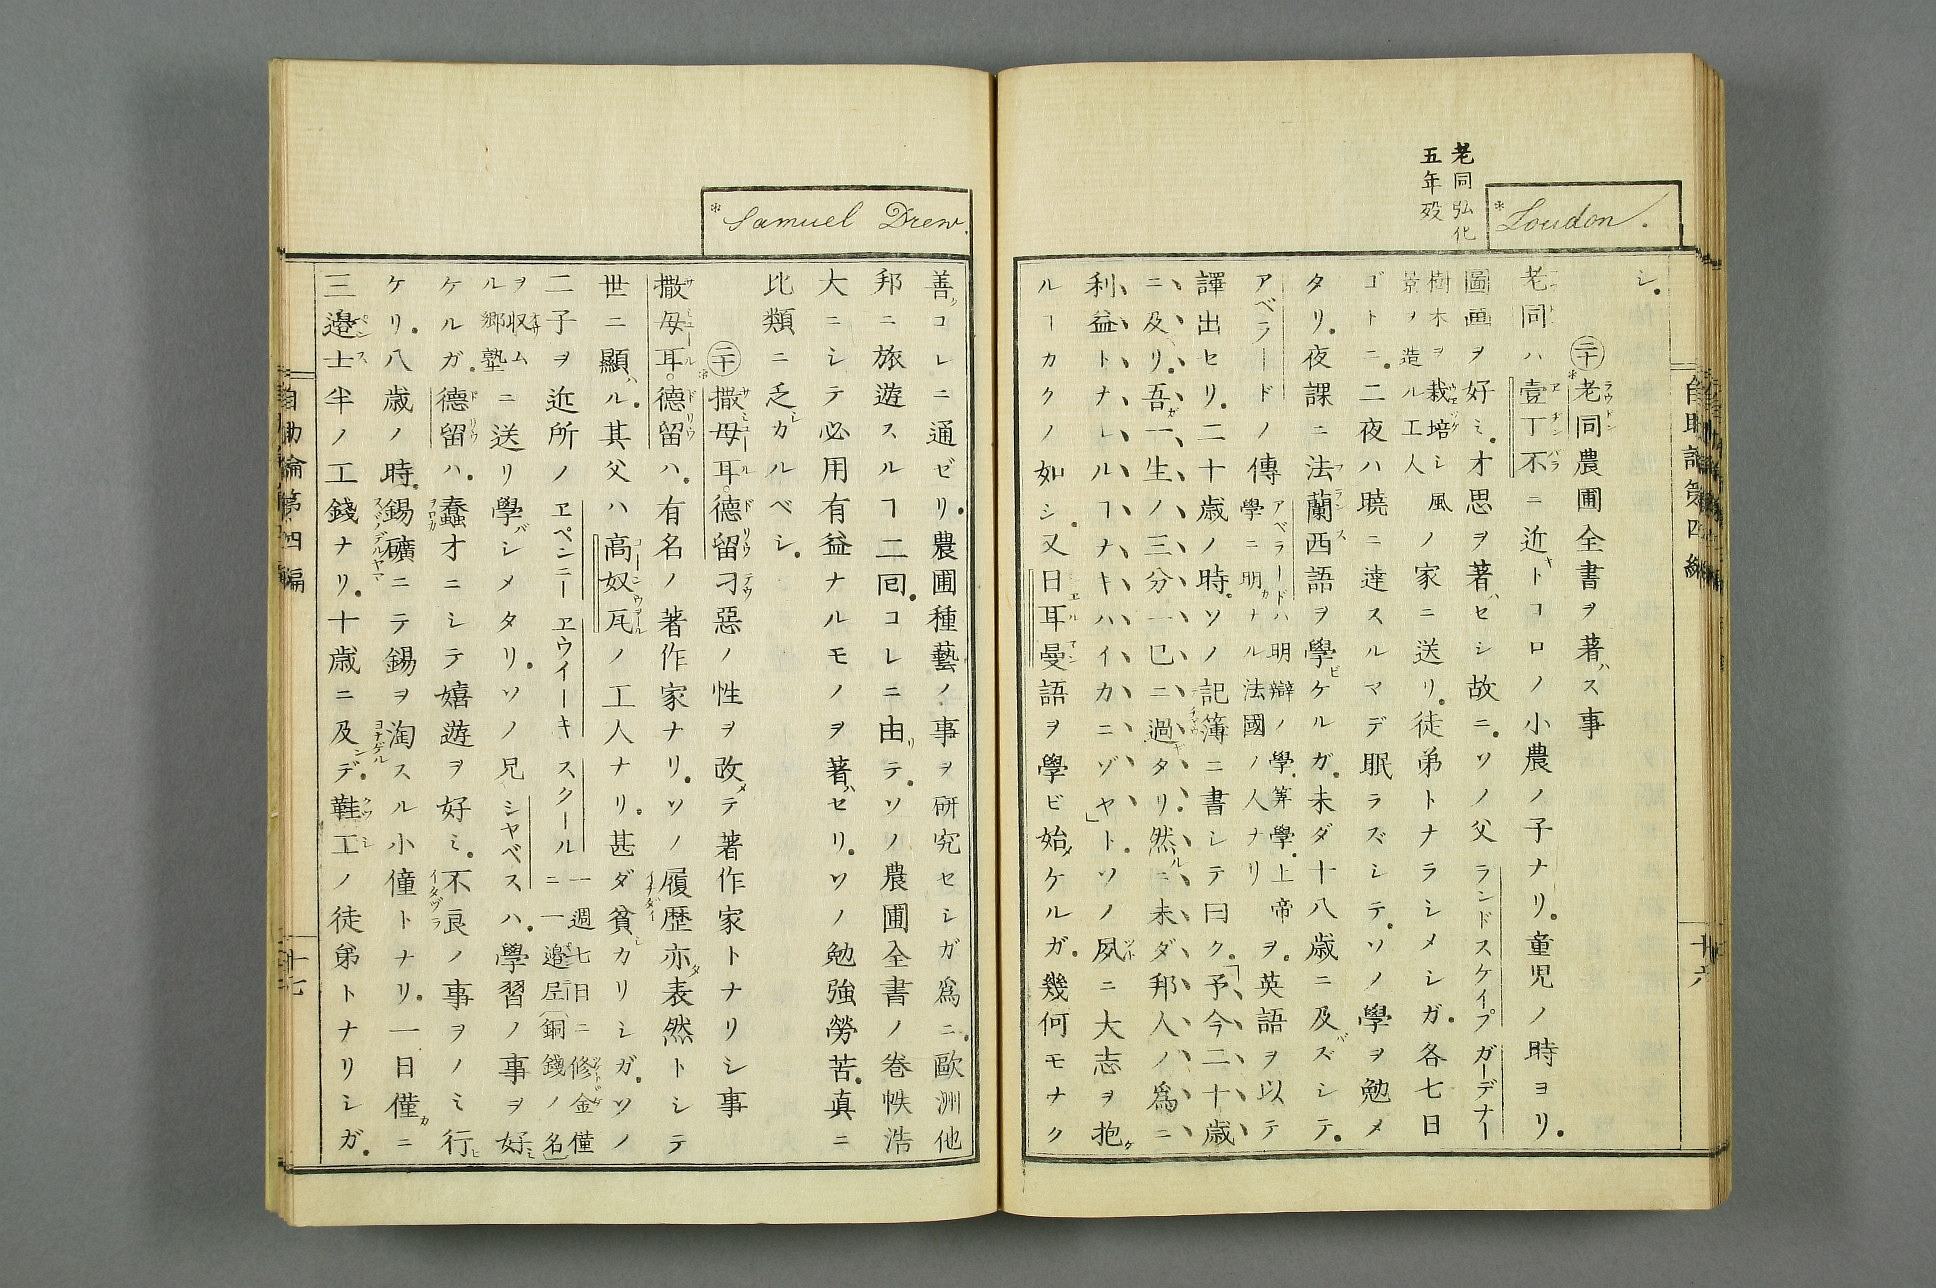 Loudon.
老同弘化
五年歿
シ。
老同農圃全書ヲ著ハス事
老同ハ壹丁不ニ近キトコロノ小農ノ子ナリ。童児ノ時ヨリ。
圖画ヲ好ミ。才思ヲ著ハセシ故ニ。ソノ父ランドスケイプガーデナー
樹木ヲ栽培シ風
景ヲ造ル工人ノ家ニ送リ。徒弟トナラシメシガ。各七日
ゴトニ。二夜ハ曉ニ達スルマデ眠ラズシテ。ソノ學ヲ勉メ
タリ。夜課ニ法蘭西語ヲ學ビケルガ。未ダ十八歳ニ及バズシテ。
アベラードノ傳アベラードハ明辯ノ學。算學。上帝ヲ。英語ヲ以テ
學ニ明カナル法國ノ人ナリ
譯出セリ。二十歳ノ時。ソノ記簿ニ書シテ曰ク。「予今二十歳
ニ及リ。吾ガ一生ノ三分一已ニ過ギタリ。然ルニ未ダ邦人ノ爲ニ
利益トナレルヿナキハイカニゾヤ」ト。ソノ夙ニ大志ヲ抱ケ
ルヿカクノ如シ。又日耳曼語ヲ學ビ始メケルガ。幾何モナク
自助論第四編
十六
Samuel Drew.
善クコレニ通ゼリ。農圃種藝ノ事ヲ研究セシガ爲ニ。歐洲他
邦ニ旅遊スルヿ二囘。コレニ由リテ。ソノ農圃全書ノ巻帙浩
大ニシテ必用有益ナルモノヲ著ハセリ。ソノ勉強勞苦。真ニ
比類ニ乏シカルベシ。
撒母耳。德留刁惡ノ性ヲ改メテ著作家トナリシ事
撒母耳。德留ハ。有名ノ著作家ナリ。ソノ履歷亦タ表然トシテ
世ニ顯ハル。其父ハ高奴瓦ノ工人ナリ。甚ダ貧シカリシガ。ソノ
二子ヲ近所ノヱペンニーヱウイーキスクールニ一週七日ニ修金僅
一邊尼（銅錢ノ名）
ヲ収ム
ル郷塾ニ送リ學バシメタリ。ソノ兄シヤベスハ。學習ノ事ヲ好ミ
ケルガ。德留ハ。蠢才ニシテ嬉遊ヲ好ミ。不良ノ事ヲノミ行ヒ
ケリ。八歳ノ時。錫礦ニテ錫ヲ淘スル小僮トナリ。一日僅カニ
三邊士半ノ工錢ナリ。十歳ニ及ンデ。鞋工ノ徒弟トナリシガ。
自助論第四編
十七